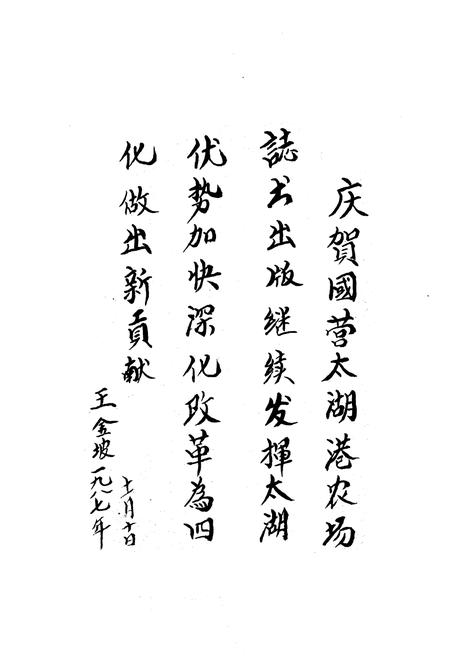 庆賀國营太湖港农场
誌书出版继续发揮太湖
优势加快深化改革為四
化做出新貢献
王金坡一九八七年
十一月十日